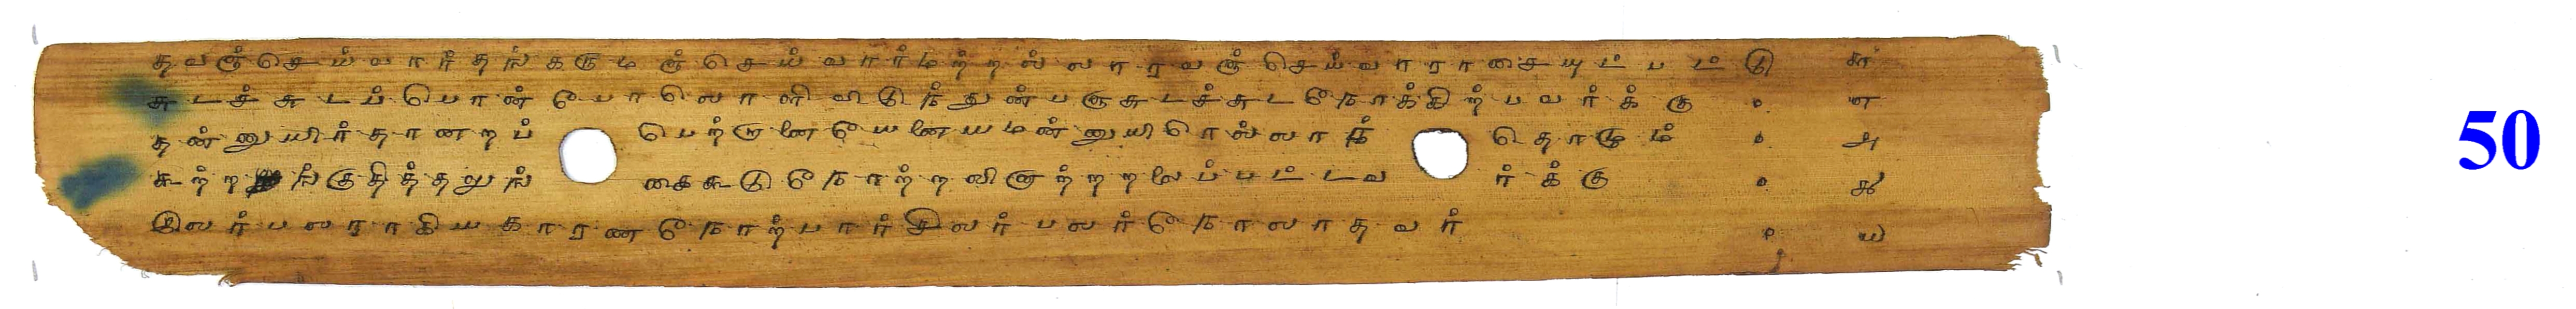 தவஞ்செய்வார்தங்கருமஞ்செய்வார்மற்றல்லாரவஞ்செய்வாராசையுட்பட்டு ௬
சுடச்சுடப்பொன்போலொளிவிடுந்துன்பஞ்சுடச்சுடநோக்கிற்பவர்க்கு ௭
தன்னுயிர்தானறப்பெற்றானையேனையமன்னுயிரெல்லாந்தொழும் ௮
கூற்றங்குதித்தலுங்கைகூடுநோற்றலினாற்றறலைப்பட்டவர்க்கு ௯
இலர்பலராகியகாரணநோற்பார்சிலர்பலர்நோலாதவர் ௰
50